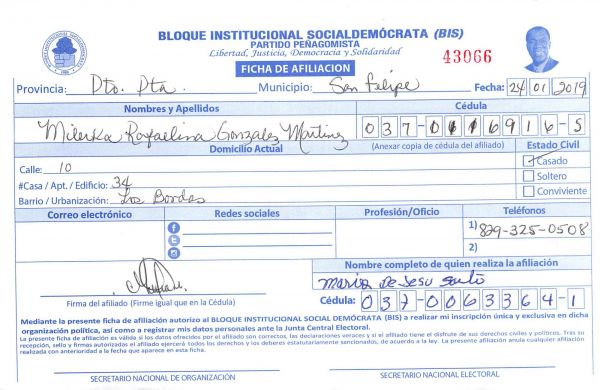 BLOQUE INSTITUCIONAL SOCIALDEMÓCRATA (BIS)
PARTIDO PEÑAGOMISTA
Libertad, Justicia, Democracia y Solidaridad
43066
FICHA DE AFILIACION
Provincia: Pto. Pta. Municipio: San Felipe Fecha: 24 01 2019
Nombres y Apellidos Cédula
Milerka Rafaelina Gonzalez Martinez 037-0116916-5
Domicilio Actual (Anexar copia de cédula del afiliado) Estado Civil
Calle: 10 Casado
#Casa / Apt. / Edificio: 34 Soltero
Barrio / Urbanización: Los Bordas Conviviente
Correo electrónico Redes sociales Profesión/Oficio Teléfonos
1) 829-325-0508
2)
Nombre completo de quien realiza la afiliación
Maria De Jesu
Firma del afiliado (Firme igual que en la Cédula) Cédula: 037-0063364-1
Mediante la presente ficha de afiliación autorizo al BLOQUE INSTITUCIONAL SOCIAL DEMÓCRATA (BIS) a realizar mi inscripción única y exclusiva en dicha
organización política, así como a registrar mis datos personales ante la Junta Central Electoral.
La presente ficha de afiliación es válida si los datos ofrecidos por el afiliado son correctos, las declaraciones veraces y si el afiliado tiene el disfrute de sus derechos civiles y políticos. Tras su
recepción, sello y firmas autorizadas el afiliado ejercerá todos los derechos y los deberes estatutariamente sancionados, de acuerdo a la ley. La presente afiliación anula cualquier afiliación
realizada con anterioridad a la fecha que aparece en esta ficha.
SECRETARIO NACIONAL DE ORGANIZACIÓN SECRETARIO NACIONAL ELECTORAL